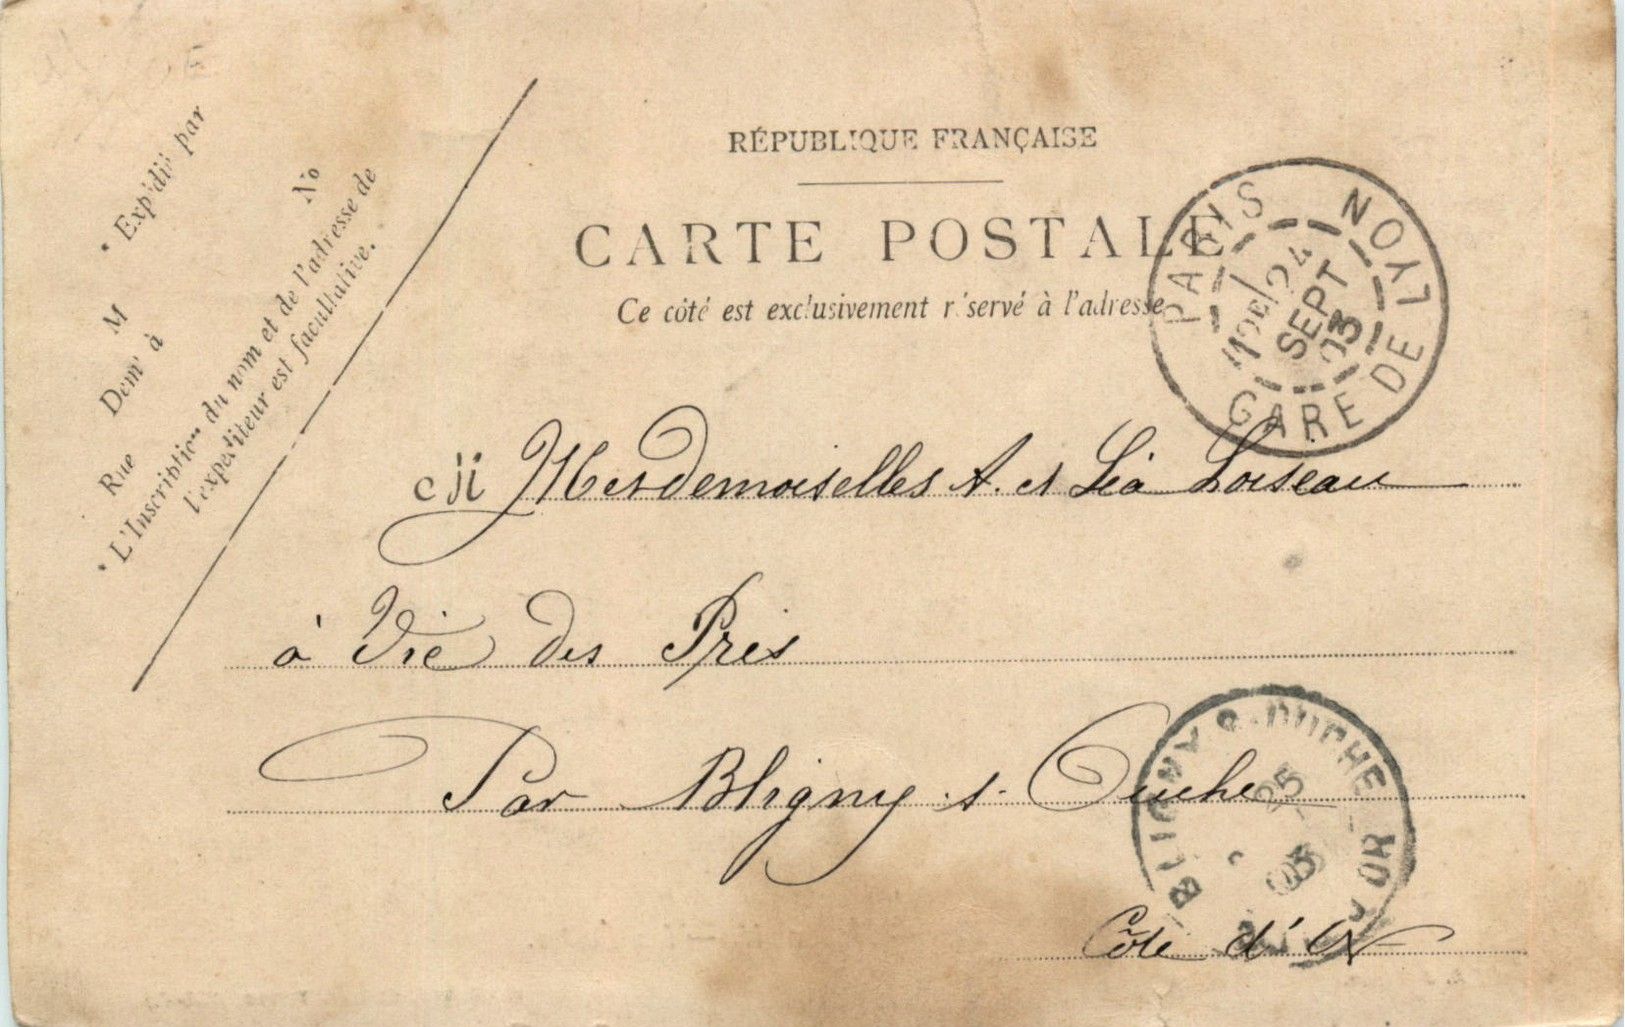 RÉPUBLIQUE FRANÇAISE
CARTE POSTALE
Ce côté est exclusivement réservé à l'adresse
* Expédié par
No
M
Dem^t à
Rue
* L'Inscription du nom et de l'adresse de
l'expéditeur est facultative.
PARIS GARE DE LYON
24
SEPT
03
Mesdemoiselles A. et Léa Loiseau
à Vic des Prés
Par Bligny s. Ouche
Côte d'Or
BLIGNY S. OUCHE
25
03